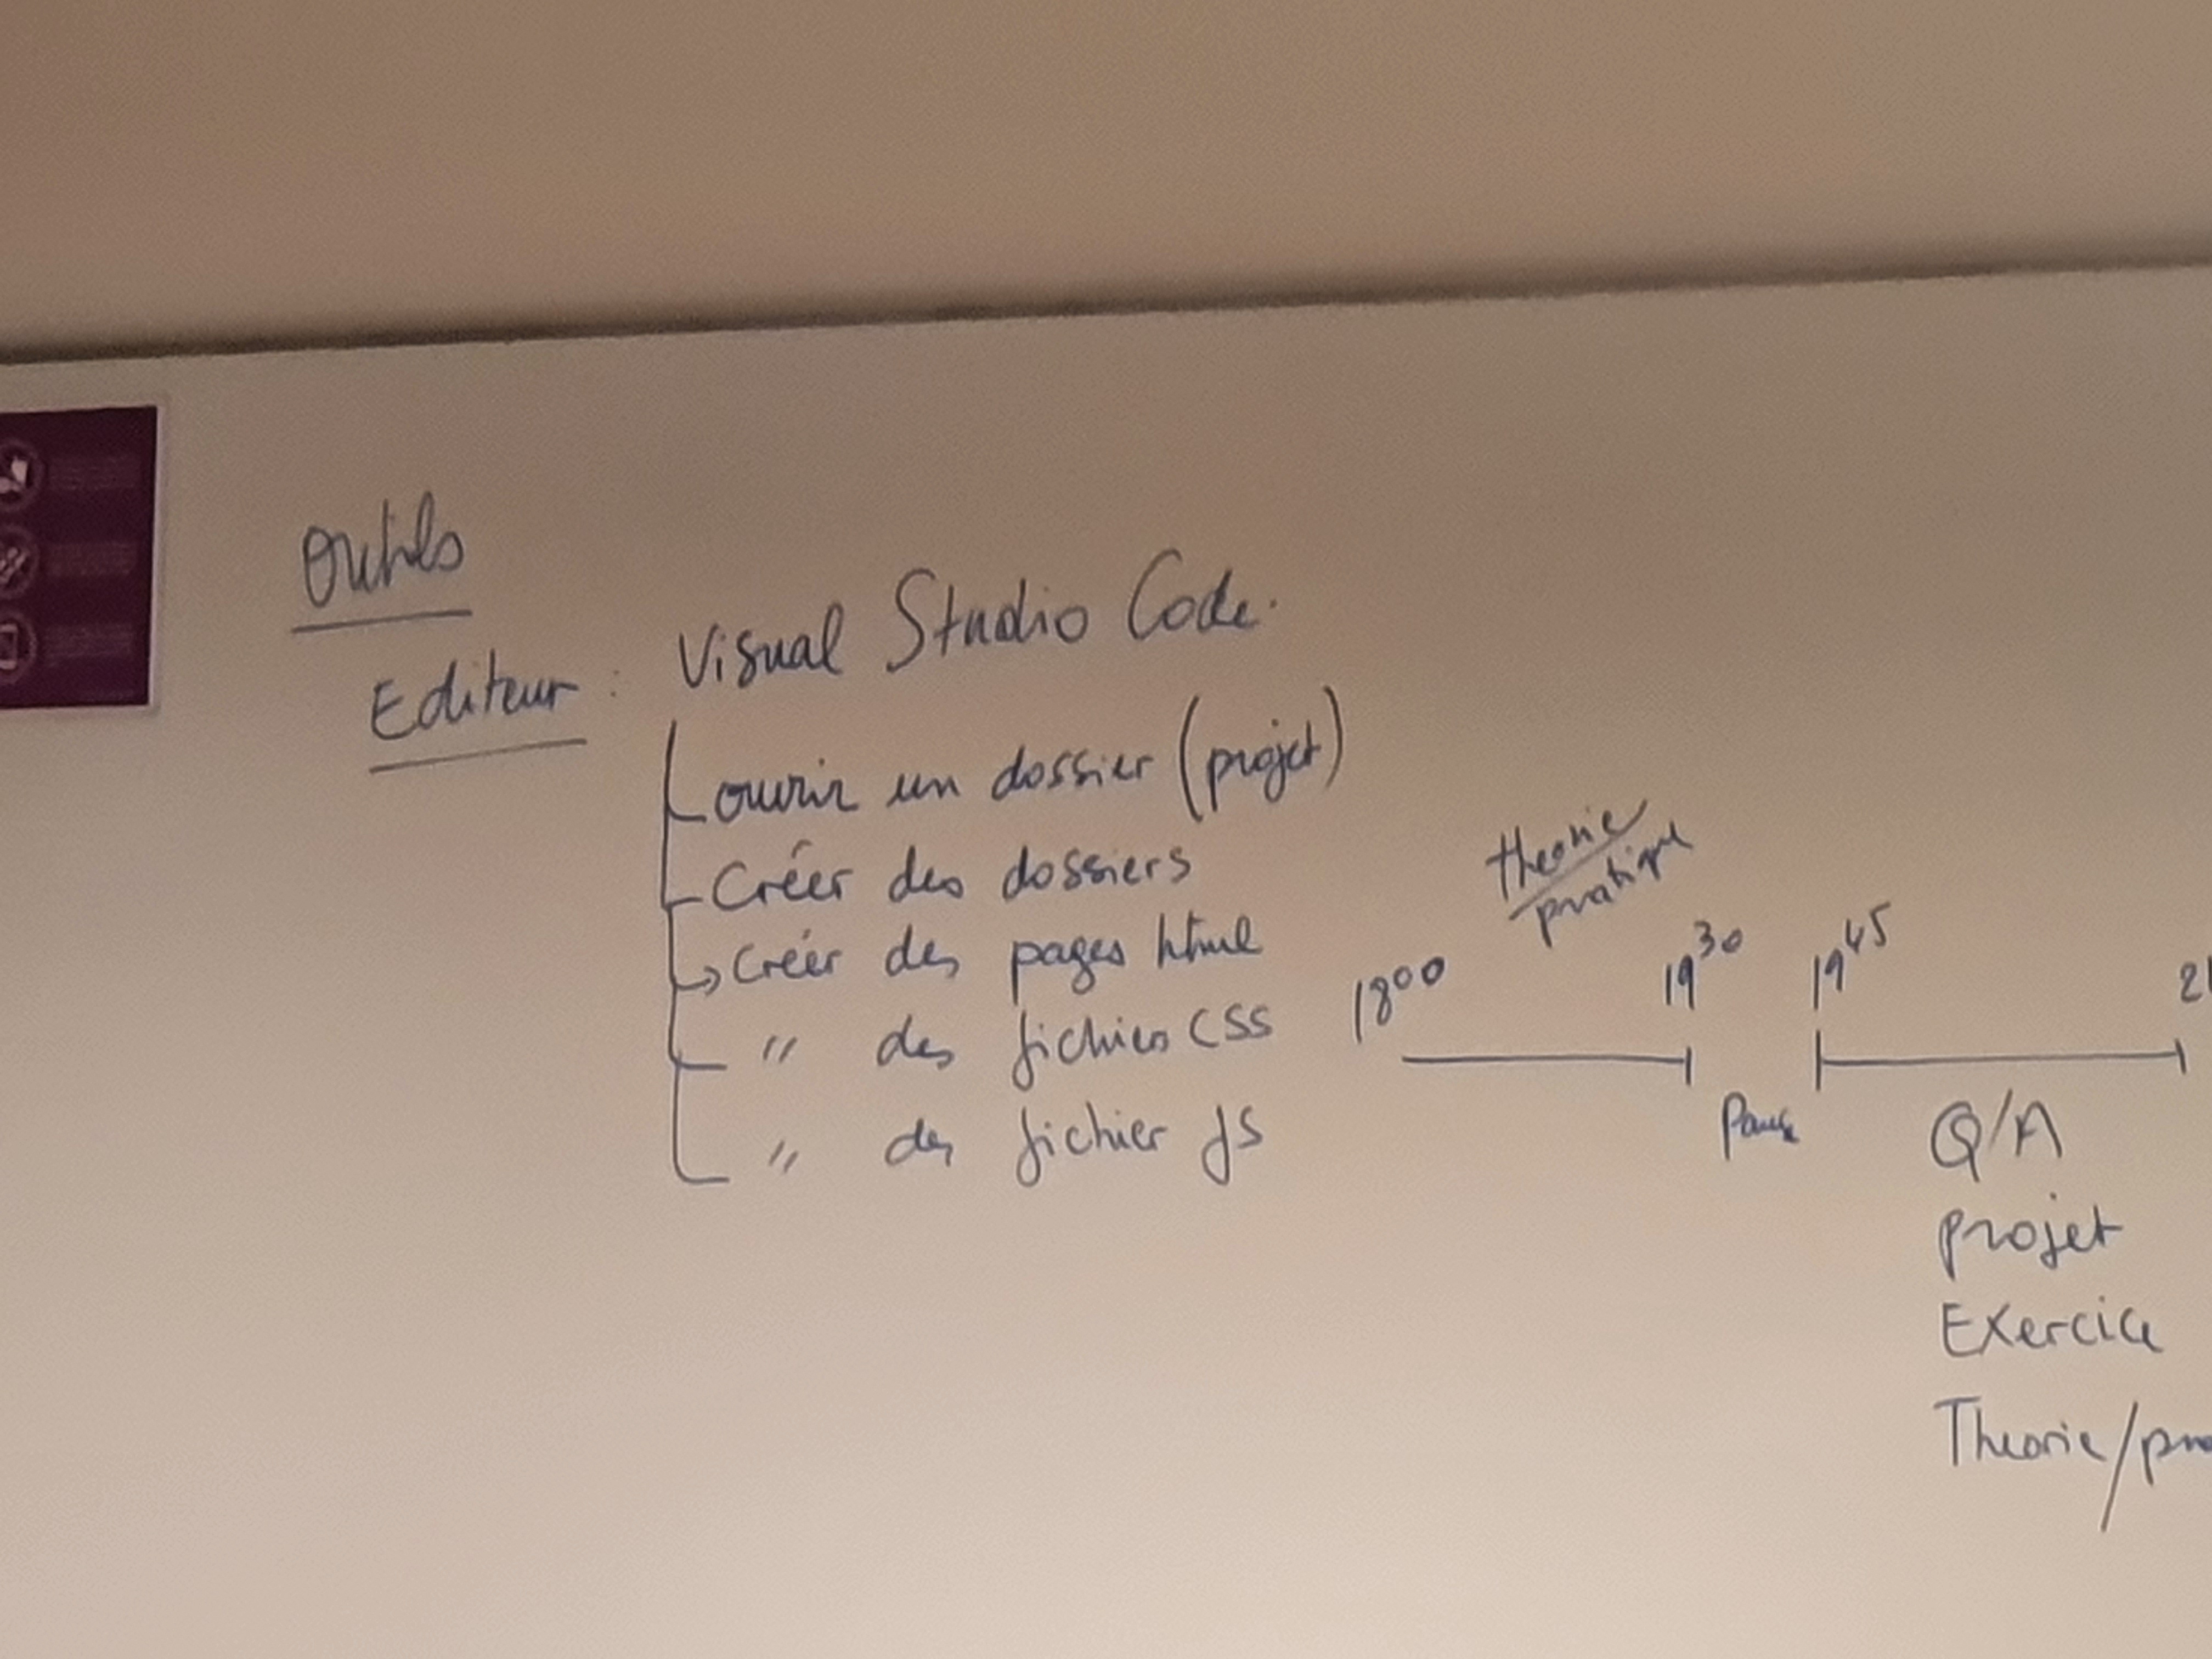 Outils
Editeur : Visual Studio Code.
ouvrir un dossier (projet)
Créer des dossiers
Créer des pages html
" des fichiers CSS
" des fichier JS
theorie
pratique
18⁰⁰ 19³⁰ 19⁴⁵ 21
Pause
Q/A
projet
Exercice
Theorie/pra